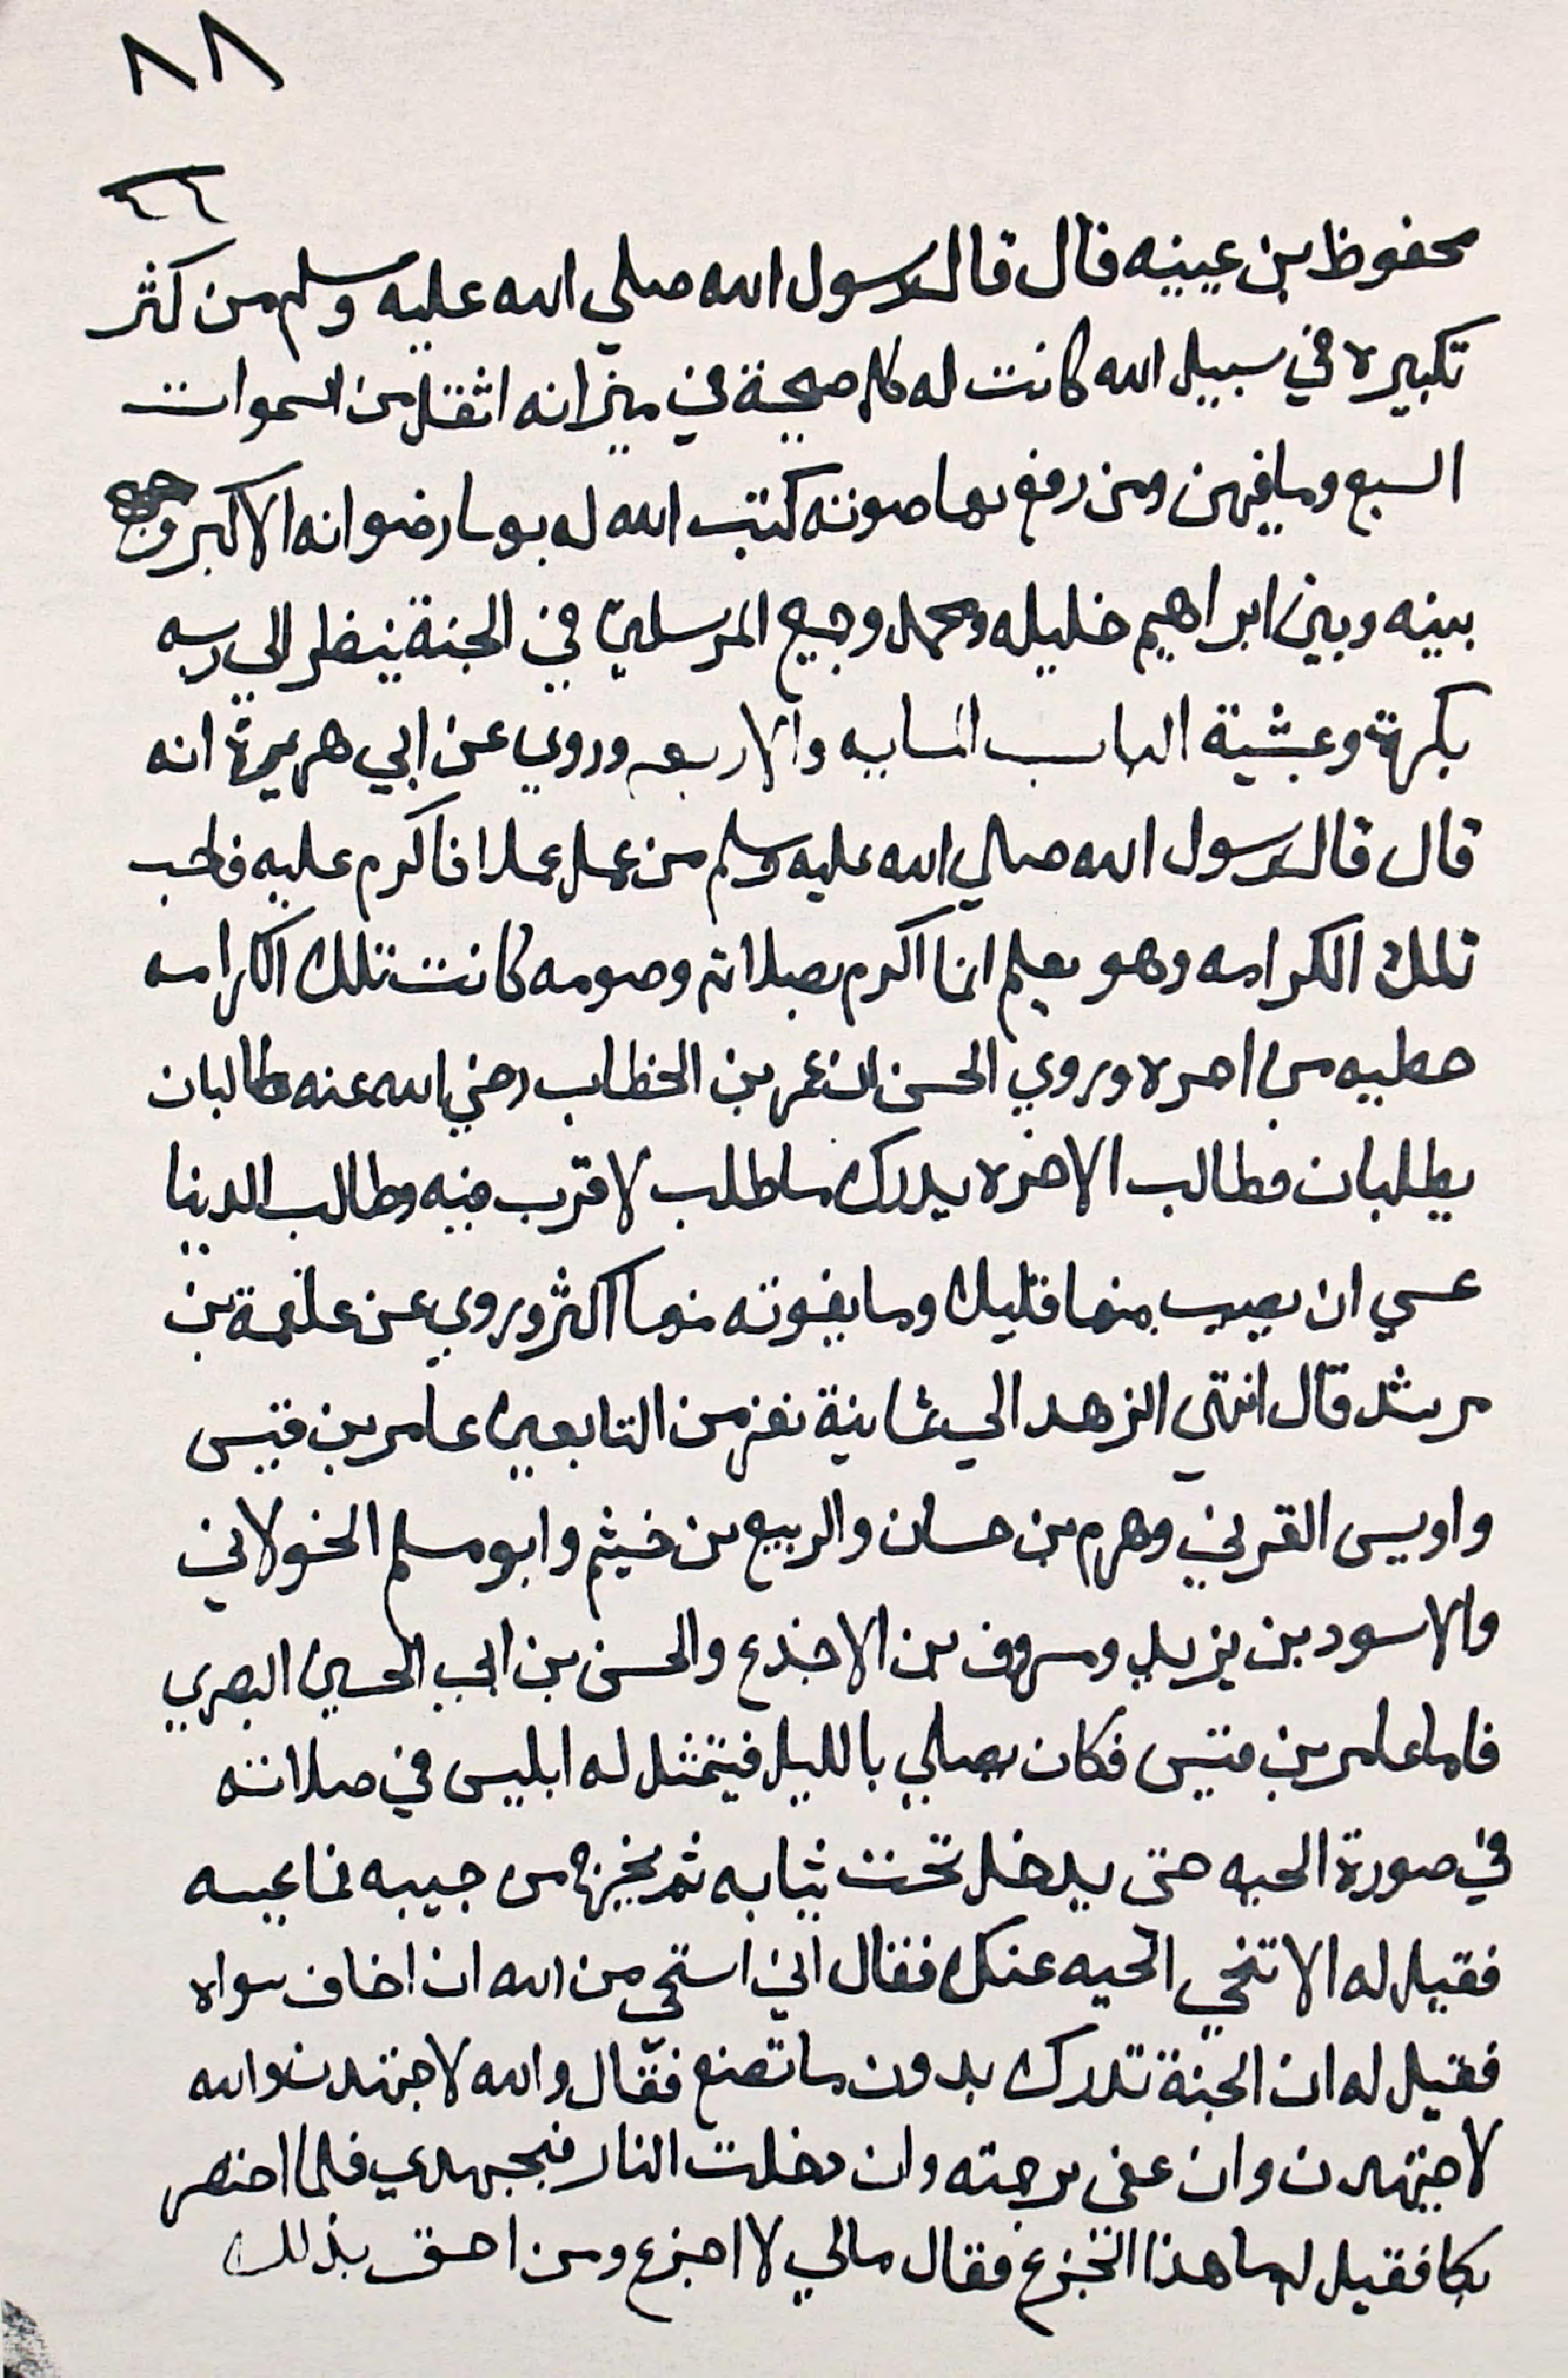 ٨٨
٤٤
محفوظ بن عيينه قال قال رسول الله صلي الله عليه وسلم من كثر
تكبيره في سبيل الله كانت له كل صيحة في ميزانه اثقل من السموات
السبع وما فيهن ومن رفع بها صوته كتب الله له بها رضوانه الاكبر وجمع
بينه وبين ابراهيم خليله ومحمد وجميع المرسلين في الجنة ينظر الي ربه
بكرة وعشية الباب والاربعه وروي عن ابي هريرة انه
قال قال رسول الله صلي الله عليه وسلم من عمل عملا فاكرم عليه
تلك الكرامه وهو يعلم انما اكرم بصلاته وصومه كانت تلك الكرامه
من اجره وروي الحسن ان عمر بن الخطاب رضي الله عنه طالبان
يطلبان فطالب الاخره يدرك ما طلب لا قرب فيه وطالب الدنيا
عسي ان يصيب منها قليلا وما يفوته منها اكثر وروي عن علقمة بن
مرثد قال انتهي الزهد الي ثمانية نفر من التابعين عامر بن قيس
واويس القرني وهرم بن حسان والربيع بن خيثم وابو مسلم الخولاني
والاسود بن يزيد ومسروق بن الاخذع والحسن بن ابي الحسين البصري
فاما عامر بن قيس فكان يصلي بالليل فيتمثل له ابليس في صلاته
في صورة الحيه حتي يدخل تحت ثيابه ثم يخرج من جيبه فما يمسه
فقيل له الا تنحي الحيه عنك فقال اني استحي من الله ان اخاف سواه
فقيل له ان الجنة تدرك بدون ما تصنع فقال والله لاجتهدن والله
لاجتهدن وان عفي برحمته وان دخلت النار فبجهدي فلما احتضر
بكا فقيل له ما هذا الجزع فقال مالي لا اجزع ومن احق بذلك